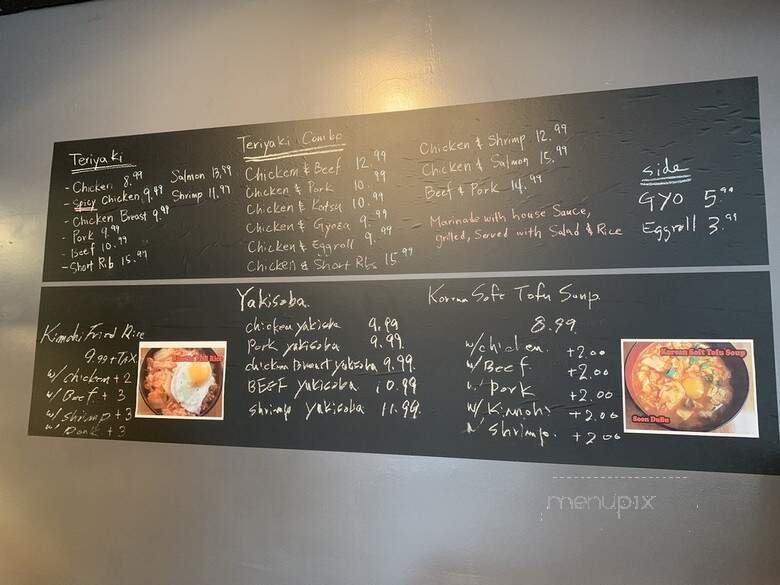 Teriyaki
- Chicken 8.99
- Spicy Chicken 9.49
- Chicken Breast 9.99
- Pork 9.99
- Beef 10.99
- Short Rib 15.99
Salmon 13.99
Shrimp 11.99
Teriyaki Combo
Chicken & Beef 12.99
Chicken & Pork 10.99
Chicken & Katsu 10.99
Chicken & Gyoza 9.99
Chicken & Eggroll 9.99
Chicken & Short Ribs 15.99
Chicken & Shrimp 12.99
Chicken & Salmon 15.99
Beef & Pork 14.99
Marinade with house Sauce,
grilled, Served with Salad & Rice
side
GYO 5.99
Eggroll 3.99
Kimchi Fried Rice
9.99 + TAX
w/ chicken + 2
w/ Beef + 3
w/ shrimp + 3
w/ Pork + 3
Yakisoba
chicken yakisoba 9.99
Pork yakisoba 9.99
chicken Breast yakisoba 9.99
BEEF yakisoba 10.99
shrimp yakisoba 11.99
Korean Soft Tofu Soup
8.99
w/ chicken +2.00
w/ Beef +2.00
w/ Pork +2.00
w/ Kimchi +2.00
w/ shrimp +2.00
Korean Soft Tofu Soup
Soon DuBu
menupix